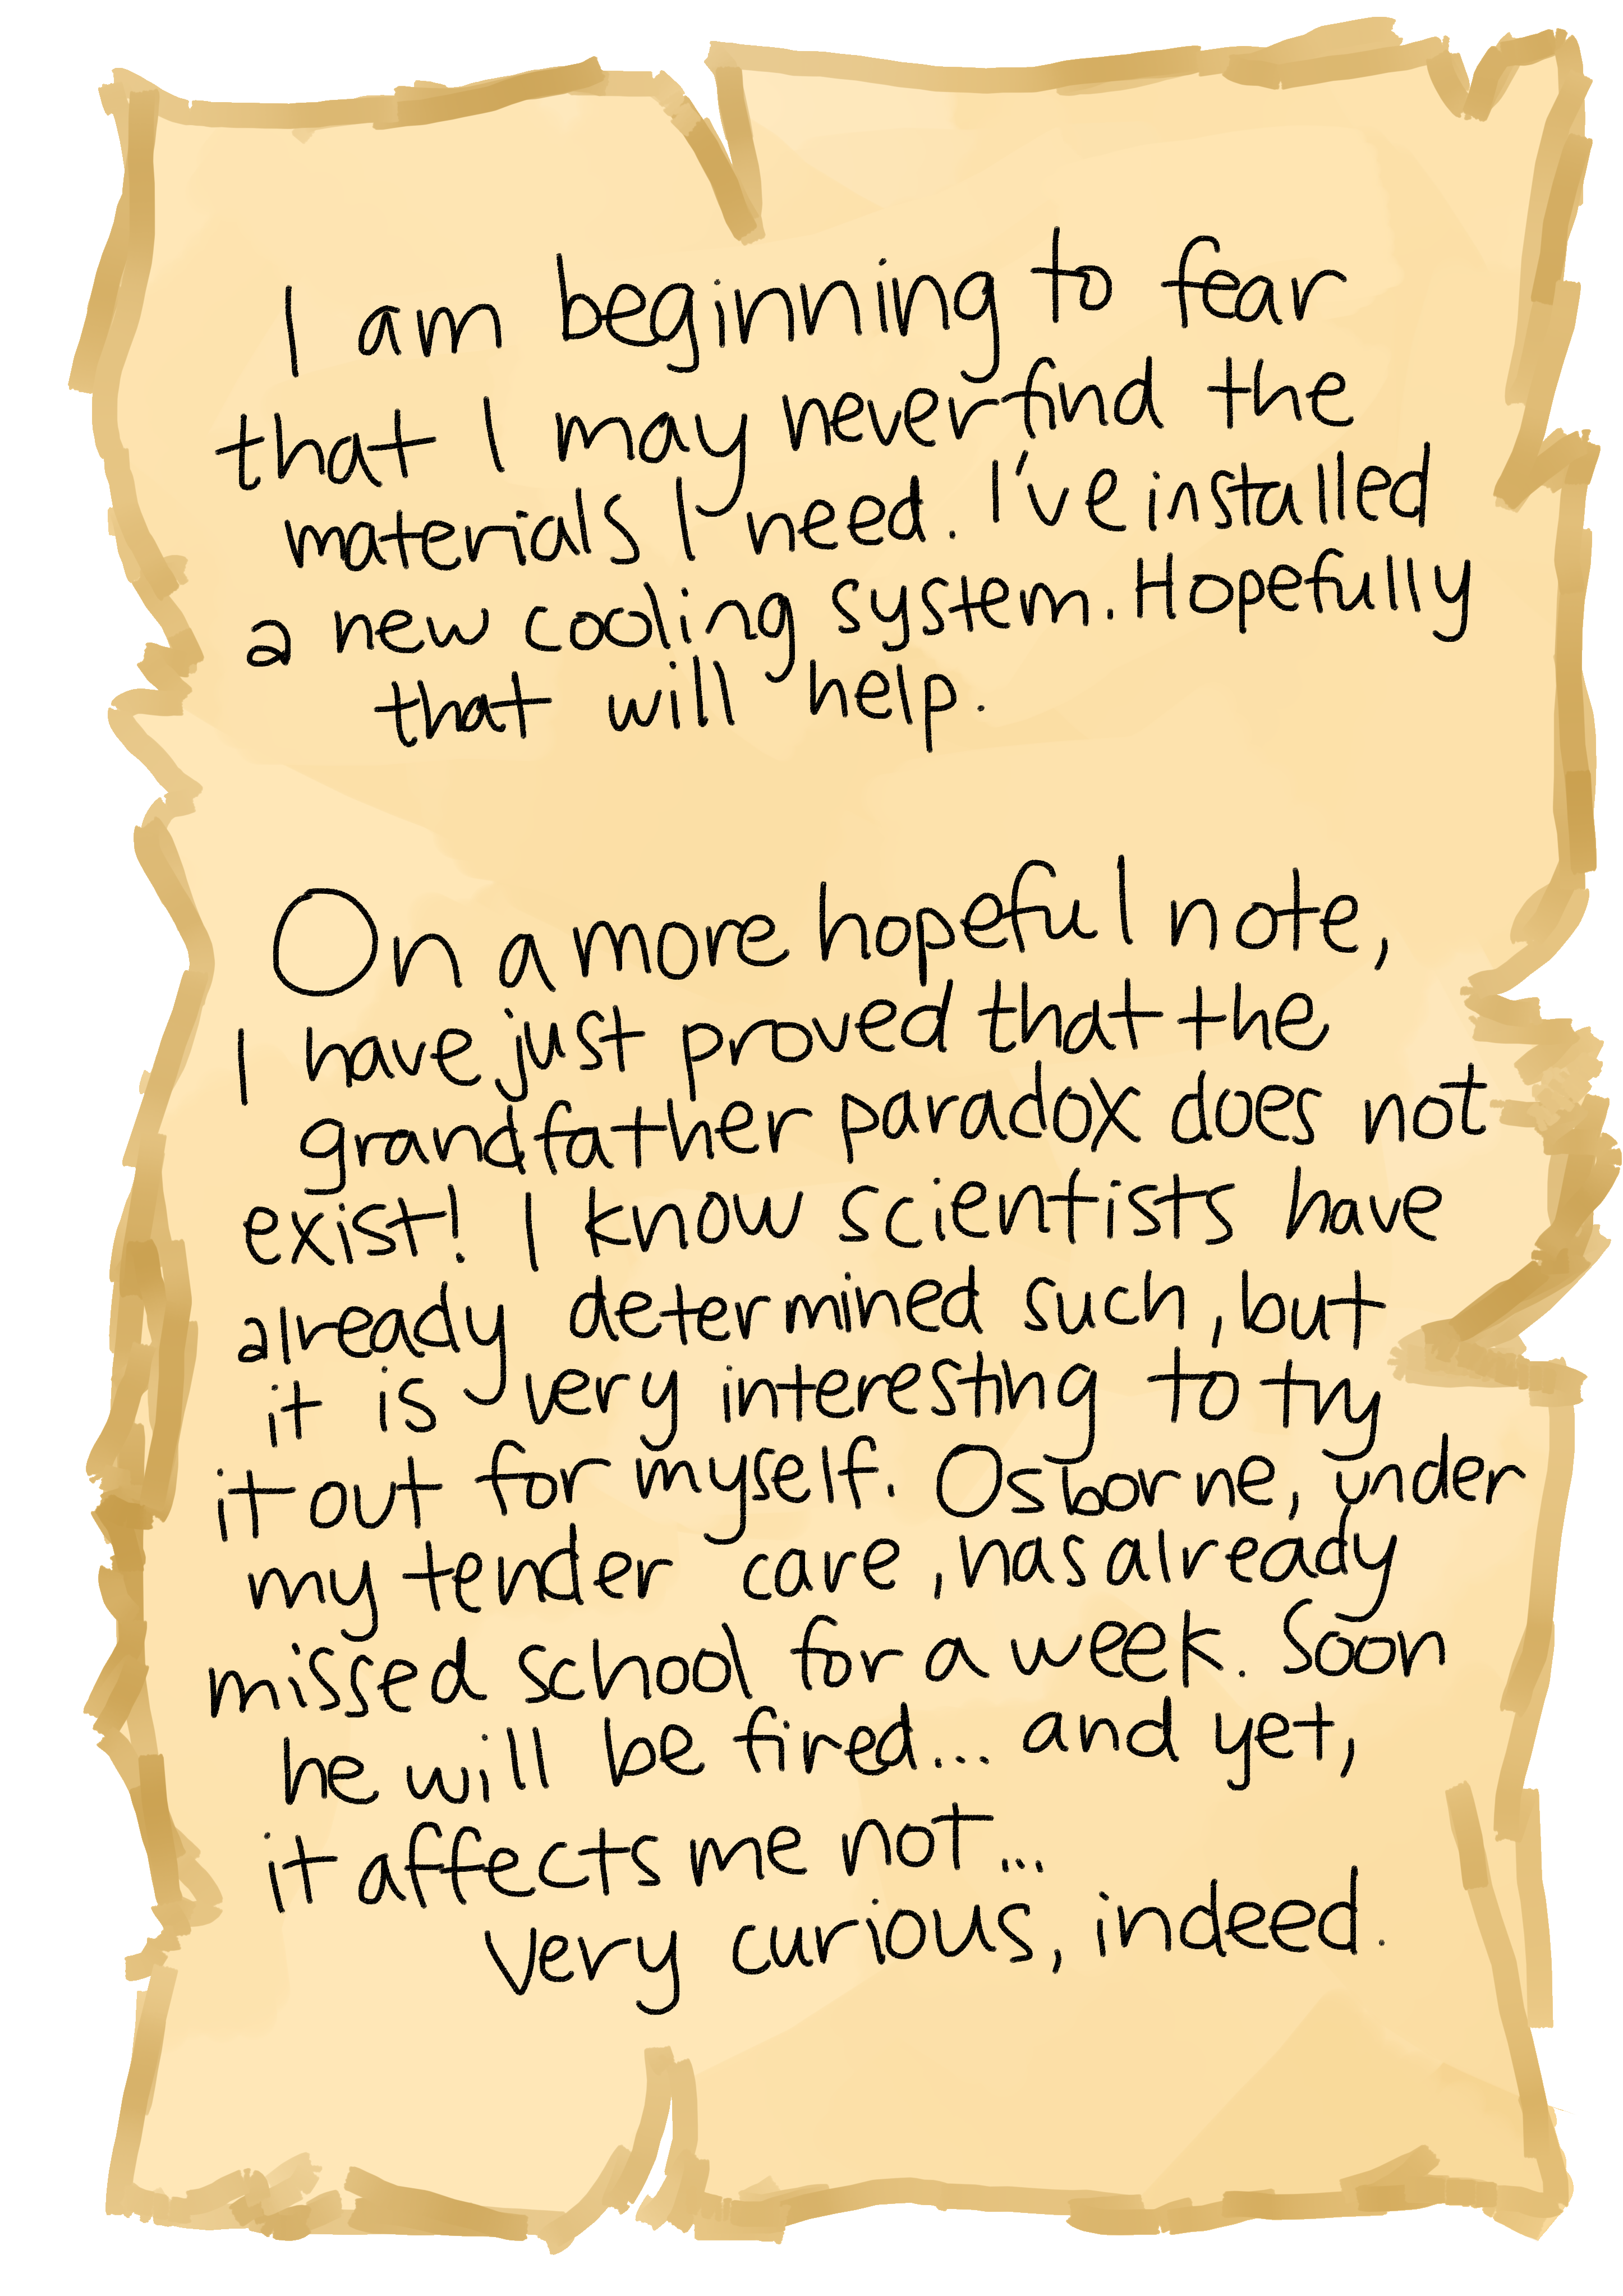 I am beginning to fear
that I may never find the
materials I need. I've installed
a new cooling system. Hopefully
that will help.
On a more hopeful note,
I have just proved that the
grandfather paradox does not
exist! I know scientists have
already determined such, but
it is very interesting to try
it out for myself. Osborne, under
my tender care, has already
missed school for a week. Soon
he will be fired... and yet,
it affects me not...
Very curious, indeed.